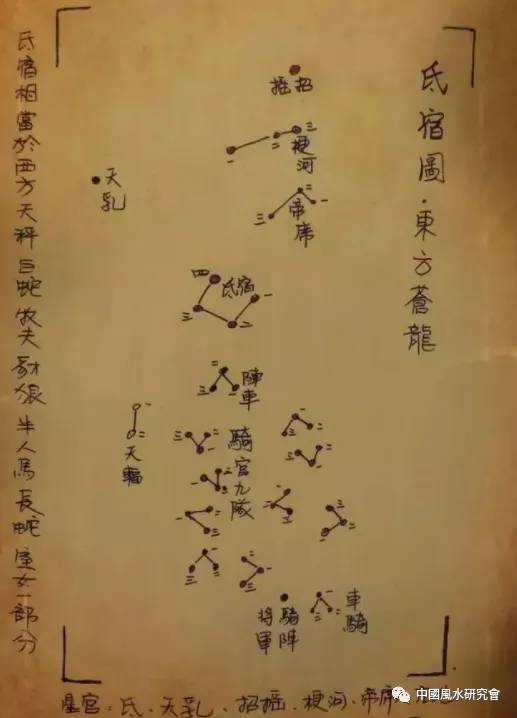 氐宿圖·東方蒼龍
摇招
三
二
一
梗河
天乳
帝席
一
二
三
四
氐宿
一
三
二
陣車
二
三
一
騎官九隊
一
二
天輻
車騎
騎陣
將軍
氐宿相當於西方天秤巨蛇牧夫豺狼半人馬長蛇室女一部分
星官：氐、天乳、招摇、梗河、帝席、
中國風水研究會